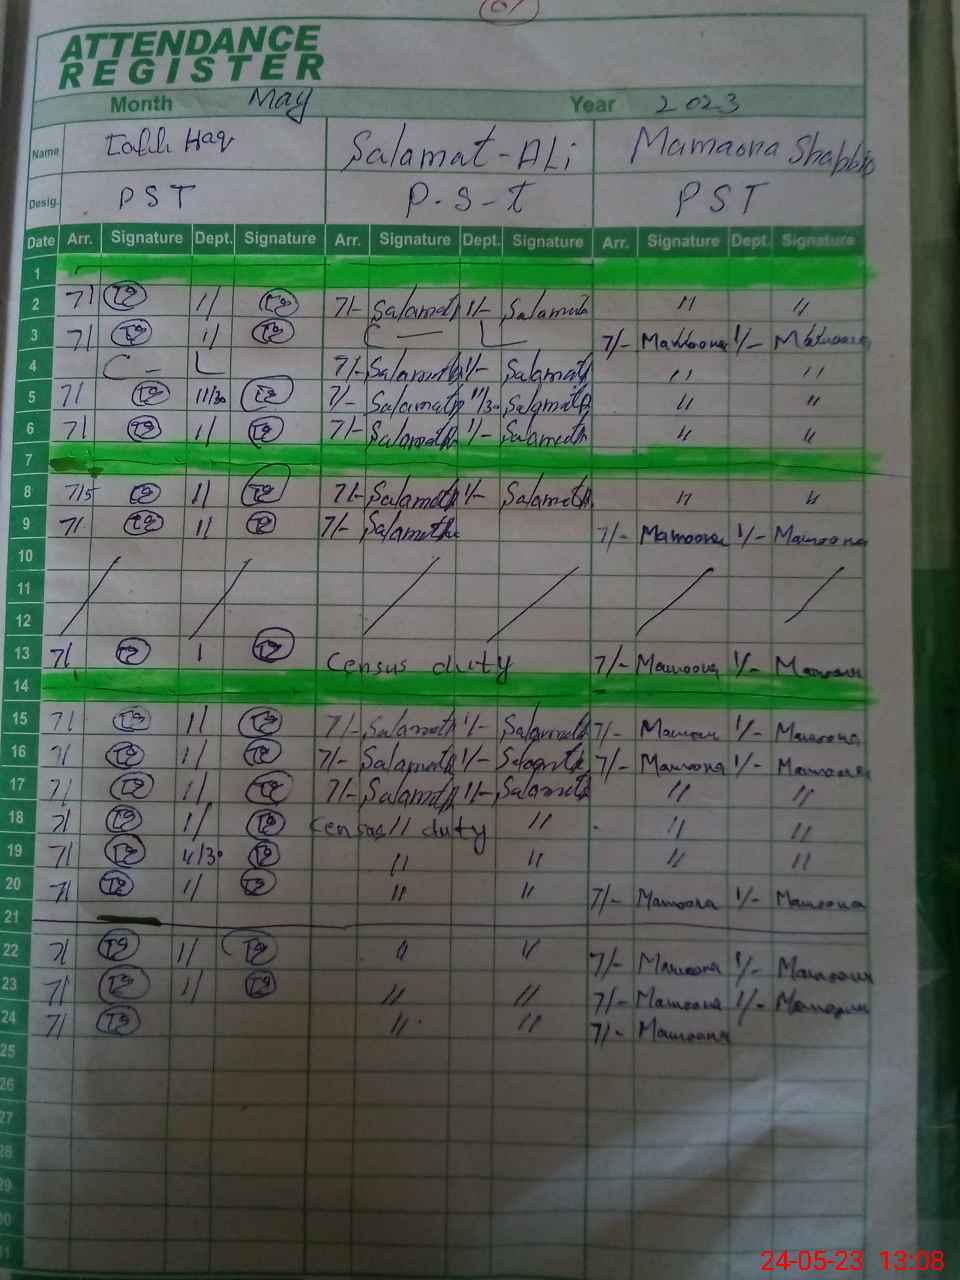 ATTENDANCE
REGISTER
Month May Year 2023
Name Salamat-ALi Mamaona Shabbir
Desig. PST P-S-t PST
Date Arr. Signature Dept. Signature Arr. Signature Dept. Signature Arr. Signature Dept. Signature
1
2 7/ 1/ 7/- Salamat 1/- Salamat " "
3 7/ 1/ C — L 7/- Mamoona 1/- Mamoona
4 C - L 7/- Salamat 1/- Salamat " "
5 7/ 11/30 7/- Salamat 11/30 Salamat " "
6 7/ 1/ 7/- Salamat 1/- Salamat " "
7
8 7/5 1/ 7/- Salamat 1/- Salamat " "
9 7/ 1/ 7/- Salamat 7/- Mamoona 1/- Mamoona
10
11
12
13 7/ 1 Census duty 7/- Mamoona 1/- Mamoona
14
15 7/ 1/ 7/- Salamat 1/- Salamat 7/- Mamoona 1/- Mamoona
16 7/ 1/ 7/- Salamat 1/- Salamat 7/- Mamoona 1/- Mamoona
17 7/ 1/ 7/- Salamat 1/- Salamat " "
18 7/ 1/ Census duty " " "
19 7/ " " " "
20 7/ 1/ " " 7/- Mamoona 1/- Mamoona
21
22 7/ 1/ " " 7/- Mamoona 1/- Mamoona
23 7/ 1/ " " 7/- Mamoona 1/- Mamoona
24 7/ " " 7/- Mamoona
25
26
27
28
29
30
31
24-05-23 13:08